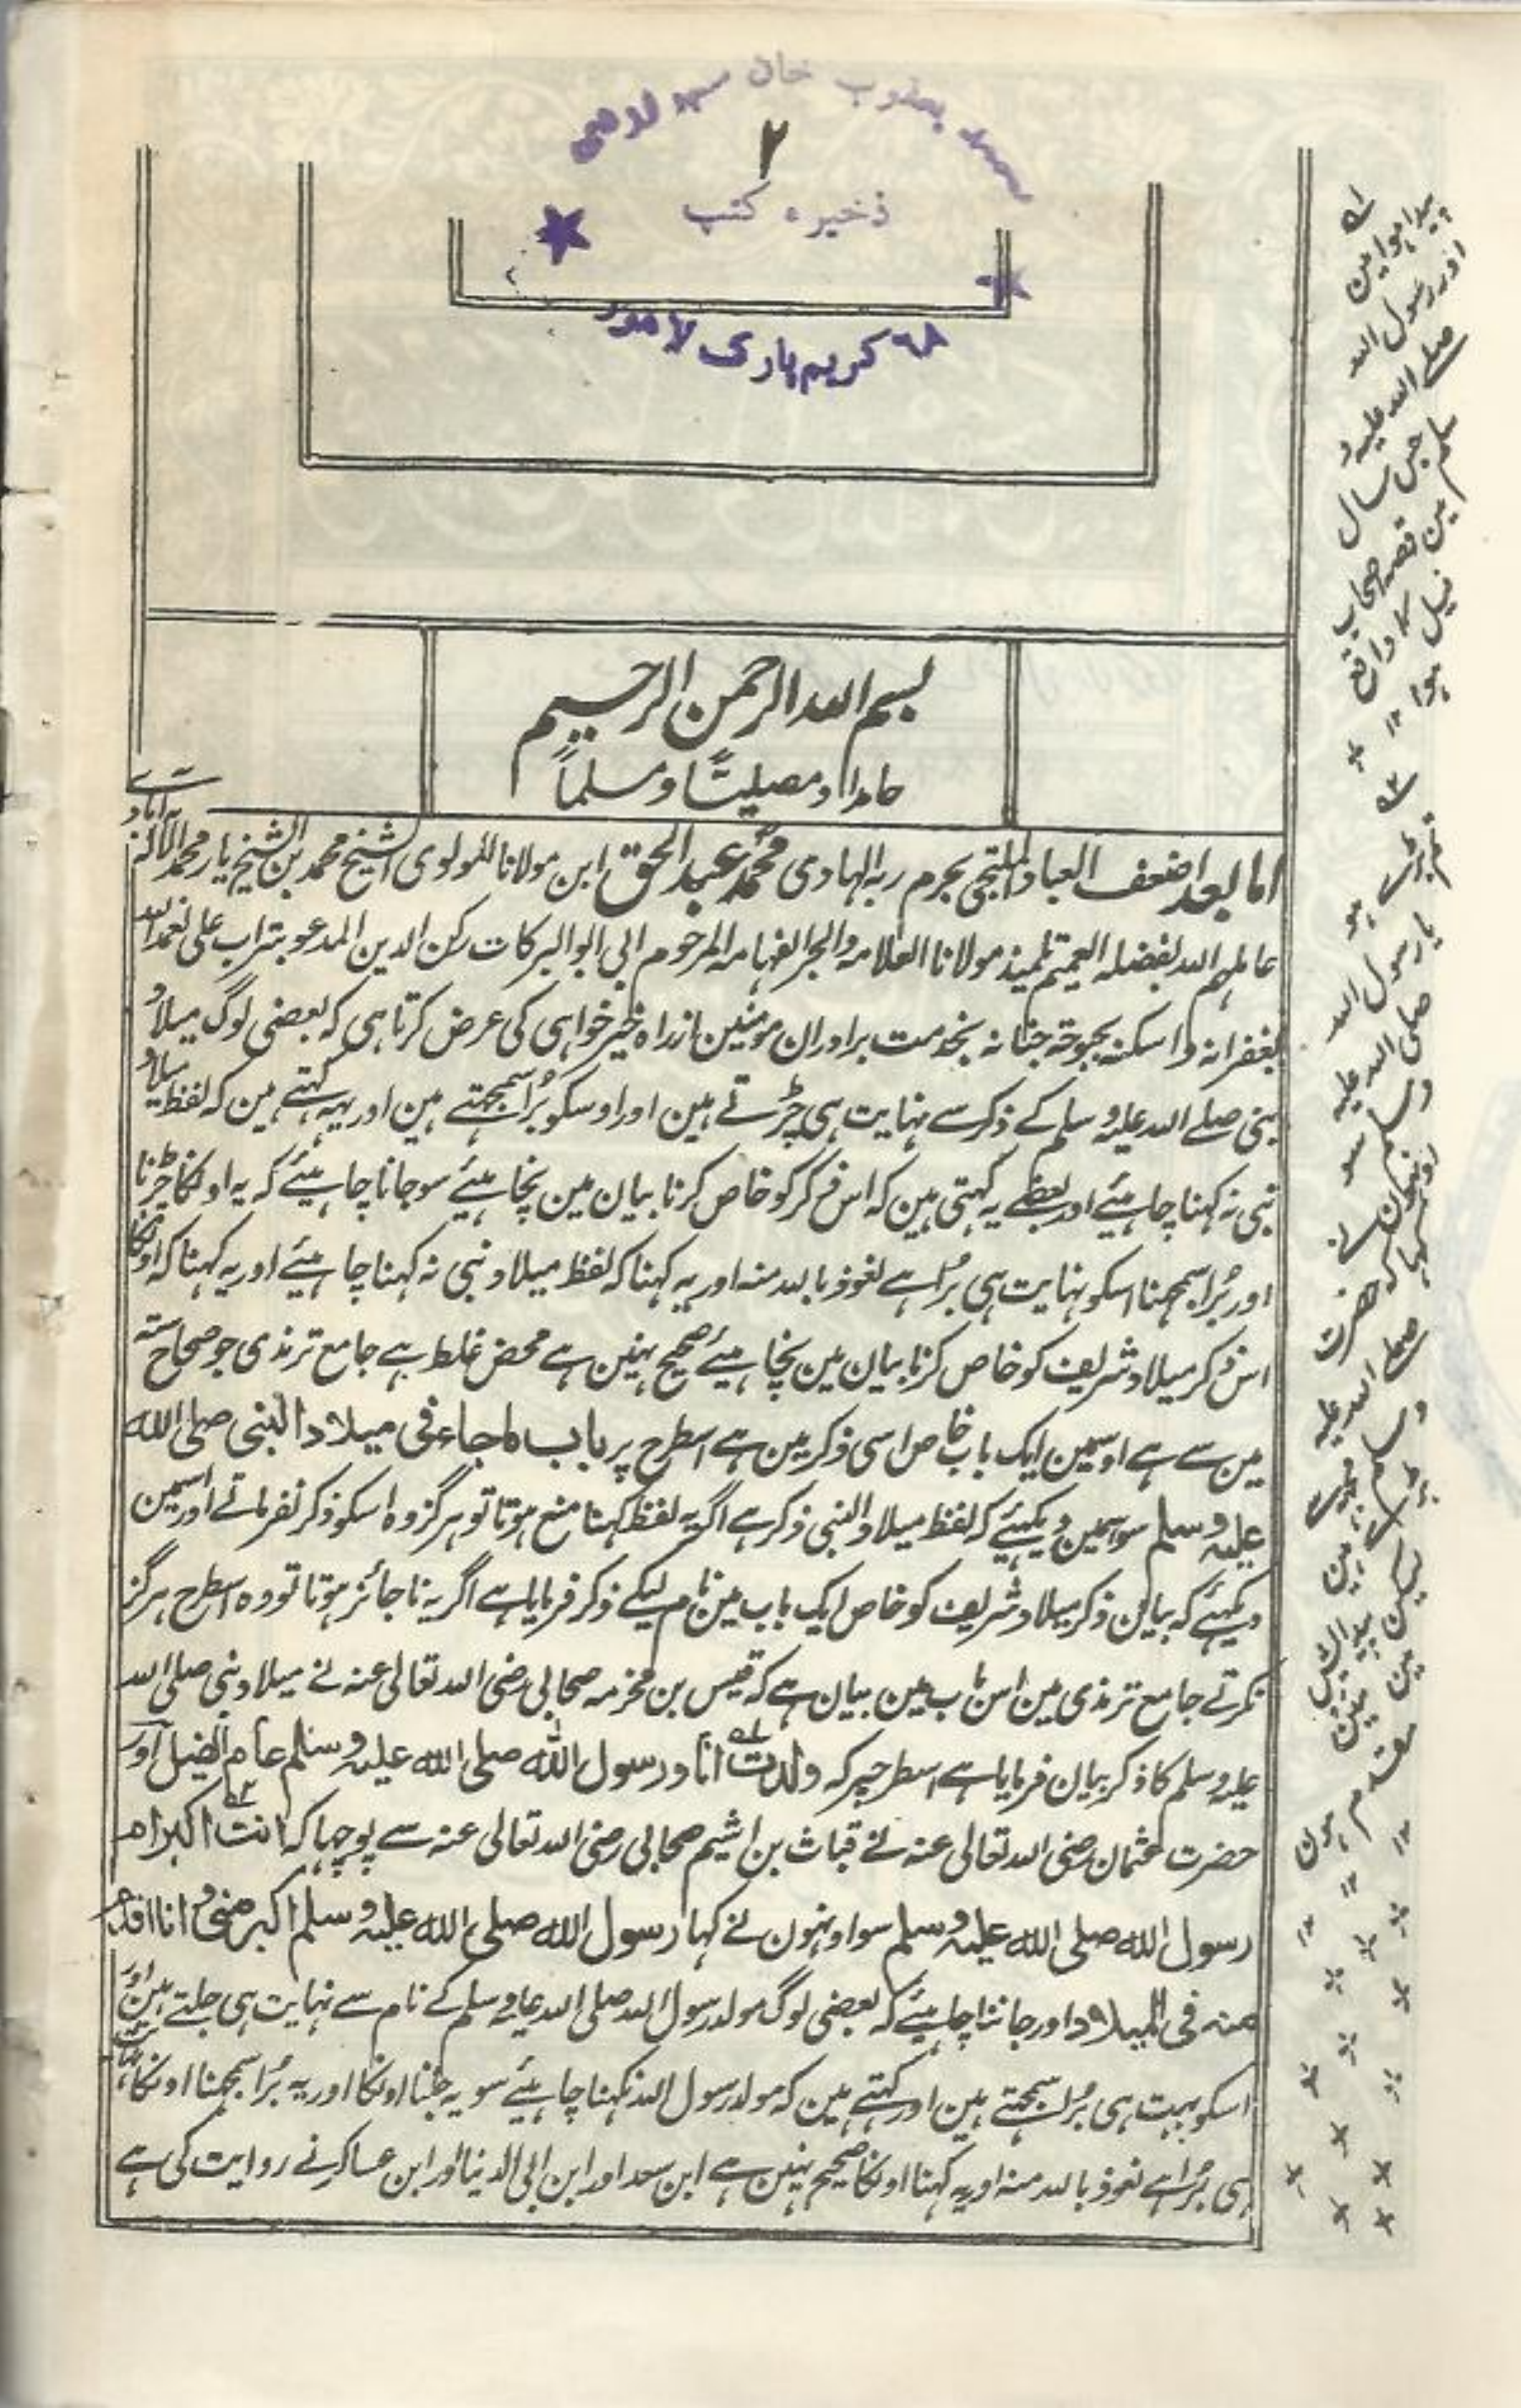 سید یعقوب خان سید لاہمی
۲
ذخیرہ کتب
۶۸ کریم پارک لاہور
بسم اللہ الرحمن الرحیم
حامدا و مصلیتًا و مسلماً
اما بعد اضعف العباد الملتجی بحرم ربہ الہادی محمد عبد الحق ابن مولانا المولوی الشیخ محمد بن الشیخ یار محمد الالہ آبادے
عاملہم اللہ بفضلہ العمیم تلمیذ مولانا العلامہ والبحر الفہامہ المرحوم ابی ابو البرکات رکن الدین المدعو بتراب علی تغمدہ اللہ
بغفرانہ واسکنہ بحبوحۃ جنانہ بخدمت براوران مومنین ازراہ خیر خواہی کی عرض کرتا ہی کہ بعضی لوگ میلاد
نبی صلے اللہ علیہ وسلم کے ذکر سے نہایت ہی چڑتے ہین اور اوسکو بُرا سمجہتے ہین اور یہہ کہتے ہین کہ لفظ میلاد
نبی نہ کہنا چاہیئے اور بعضے یہ کہتی ہین کہ اس ذکر کو خاص کرنا بیان مین نچاہیئے سو جانا چاہیئے کہ یہ اونکا چڑنا
اور بُرا سمجہنا اسکو نہایت ہی بُرا ہے نعوذ باللہ منہ اور یہ کہنا کہ لفظ میلاد نبی نہ کہنا چاہیئے اور یہ کہنا کہ اونکا
اس ذکر میلاد شریف کو خاص کرنا بیان مین نچاہیئے صحیح نہین ہے محض غلط ہے جامع ترمذی جو صحاح ستہ
مین سے ہے اوسمین ایک باب خاص اسی ذکر مین ہے اسطرح پر باب ما جاء فی میلاد النبی صلی اللہ
علیہ وسلم سو اسمین دیکہیئے کہ لفظ میلاد النبی ذکر ہے اگر یہ لفظ کہنا منع ہوتا تو ہرگز وہ اسکو ذکر نفرماتے اور اسمین
دیکہیئے کہ بیان ذکر میلاد شریف کو خاص ایک باب مین نام لیکے ذکر فرمایا ہے اگر یہ ناجائز ہوتا تو وہ اسطرح ہرگز
نکرتے جامع ترمذی مین اس باب مین بیان ہے کہ قیس بن مخرمہ صحابی رضی اللہ تعالی عنہ نے میلاد نبی صلی اللہ
علیہ وسلم کا ذکر بیان فرمایا ہے اسطرحپر کہ ولدت انا و رسول اللہ صلی اللہ علیہ وسلم عام الفیل اور
حضرت عثمان رضی اللہ تعالی عنہ نے قباث بن اشیم صحابی رضی اللہ تعالی عنہ سے پوچہا کہ انت اکبر ام
رسول اللہ صلی اللہ علیہ وسلم سو اونہون نے کہا رسول اللہ صلی اللہ علیہ وسلم اکبر منی و انا اقدم
منہ فی المیلاد اور جاننا چاہیئے کہ بعضی لوگ مولد رسول اللہ صلی اللہ علیہ وسلم کے نام سے نہایت ہی جلتے ہین اور
اسکو بہت ہی بُرا سمجہتے ہین اور کہتے ہین کہ مولد رسول اللہ نکہنا چاہیئے سو یہ جلنا اونکا اور یہ بُرا سمجہنا اونکا بہت
ہی بُرا ہے نعوذ باللہ منہ اور یہ کہنا اونکا صحیح نہین ہے ابن سعد اور ابن ابی الدنیا اور ابن عساکر نے روایت کی ہے
پیدا ہوا مین
اور رسول اللہ
صلے اللہ علیہ و
سلم جس سال
مین قصہ اصحاب
فیل کا واقع
ہوا ۱۲
تم بڑے ہو
یا رسول اللہ
صلی اللہ علیہ
وسلم سو
اونہون نے
کہا کہ حضرت
صلی اللہ علیہ
وسلم مجہسے
بڑے ہین
لیکن پیدایش
مین مین
مقدم ہون
۱۲